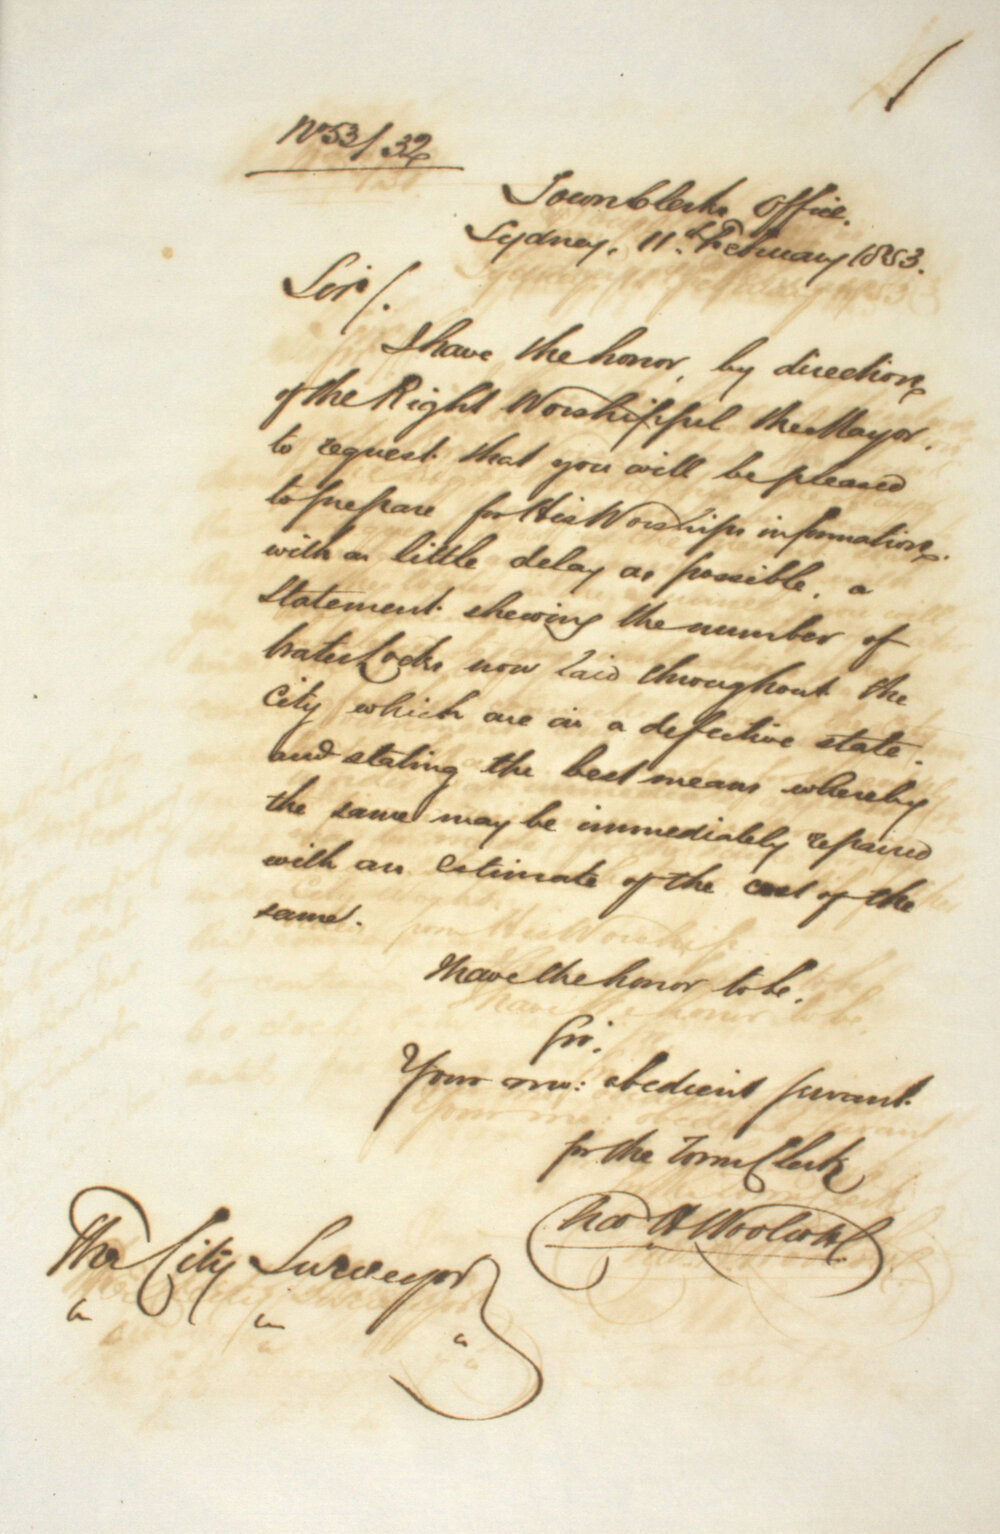 No 53/32
Town Clerks Office.
Sydney, 11th February 1853.
Sir/.
I have the honor, by direction
of the Right Worshipful the Mayor.
to request that you will be pleased
to prepare for His Worships information
with as little delay as possible, a
Statement shewing the number of
Water Cocks now laid throughout the
City which are in a defective state.
and stating the best means whereby
the same may be immediately repaired
with an estimate of the cost of the
same.
I have the honor to be.
Sir.
Your mo: obedient servant
for the Town Clerk
Woolcott
The City Surveyor
" " "